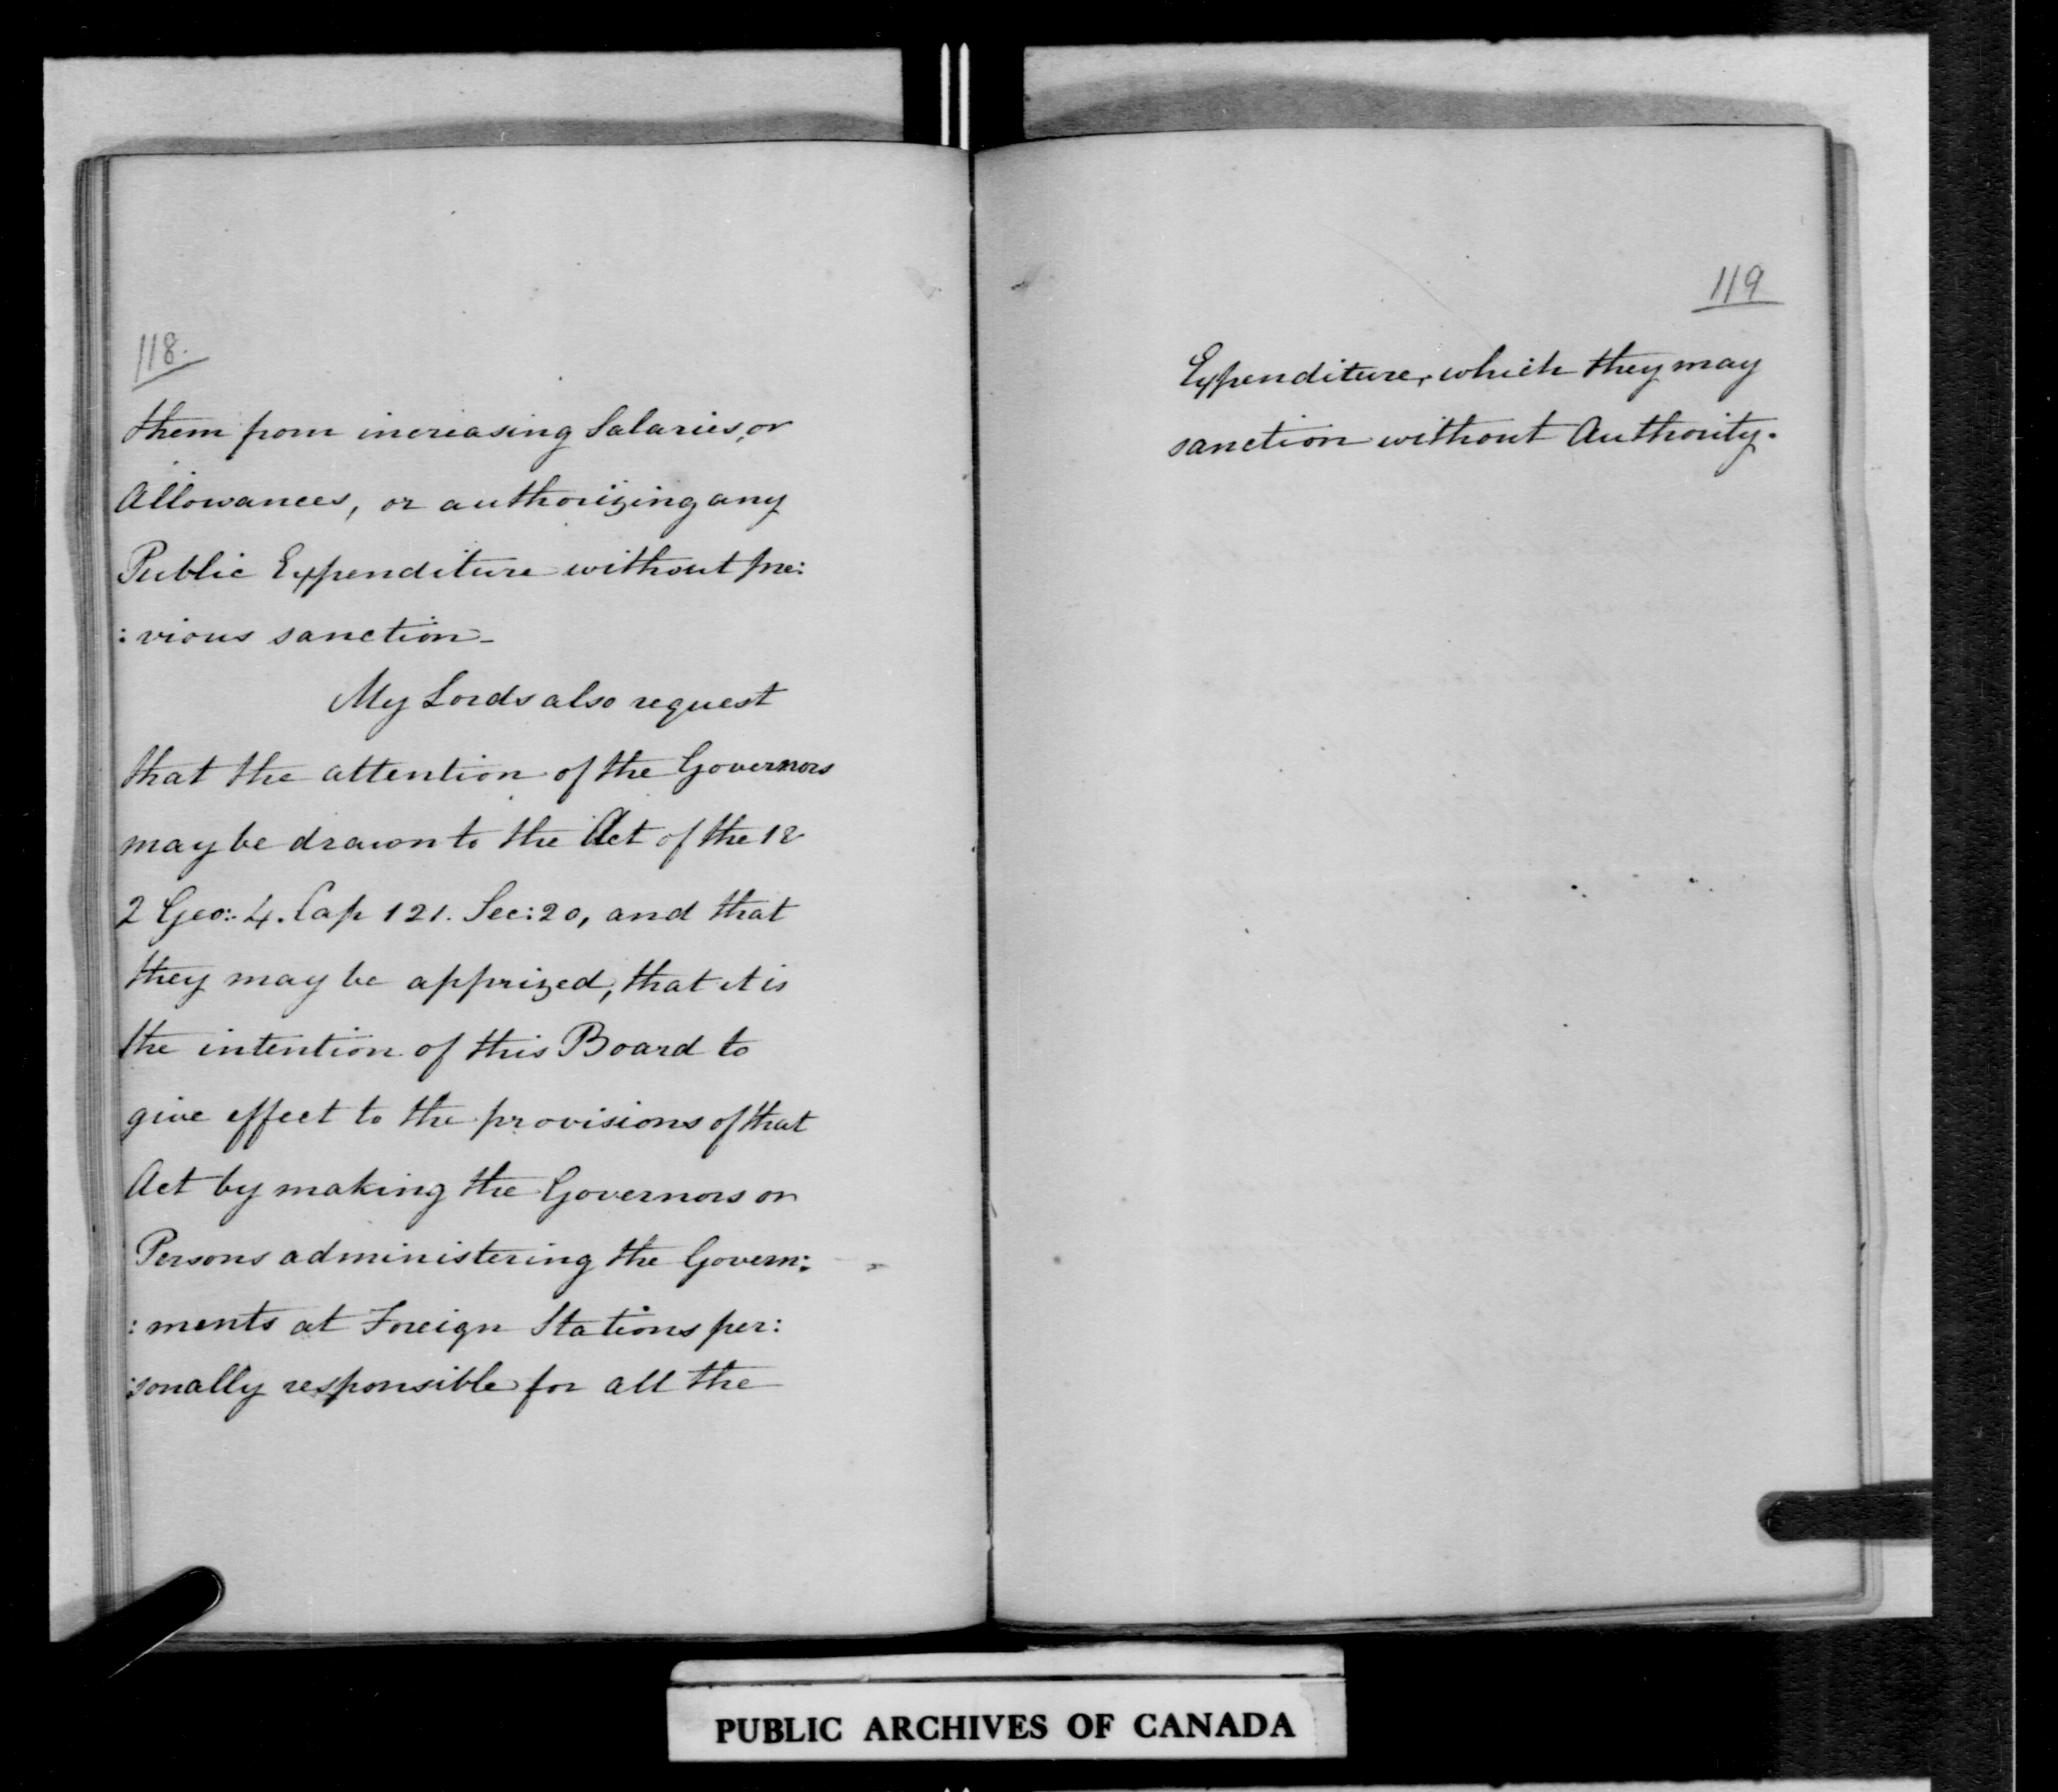 118.
them from increasing Salaries, or
Allowances, or authorizing any
Public Expenditure without pre:
:vious sanction_
My Lords also request
that the attention of the Governors
may be drawn to the Act of the 1 &
2 Geo: 4. Cap 121. Sec: 20, and that
they may be apprized, that it is
the intention of this Board to
give effect to the provisions of that
Act by making the Governors or
Persons administering the Govern:
:ments at Foreign Stations per:
:sonally responsible for all the
119
Expenditure, which they may
sanction without Authority.
PUBLIC ARCHIVES OF CANADA